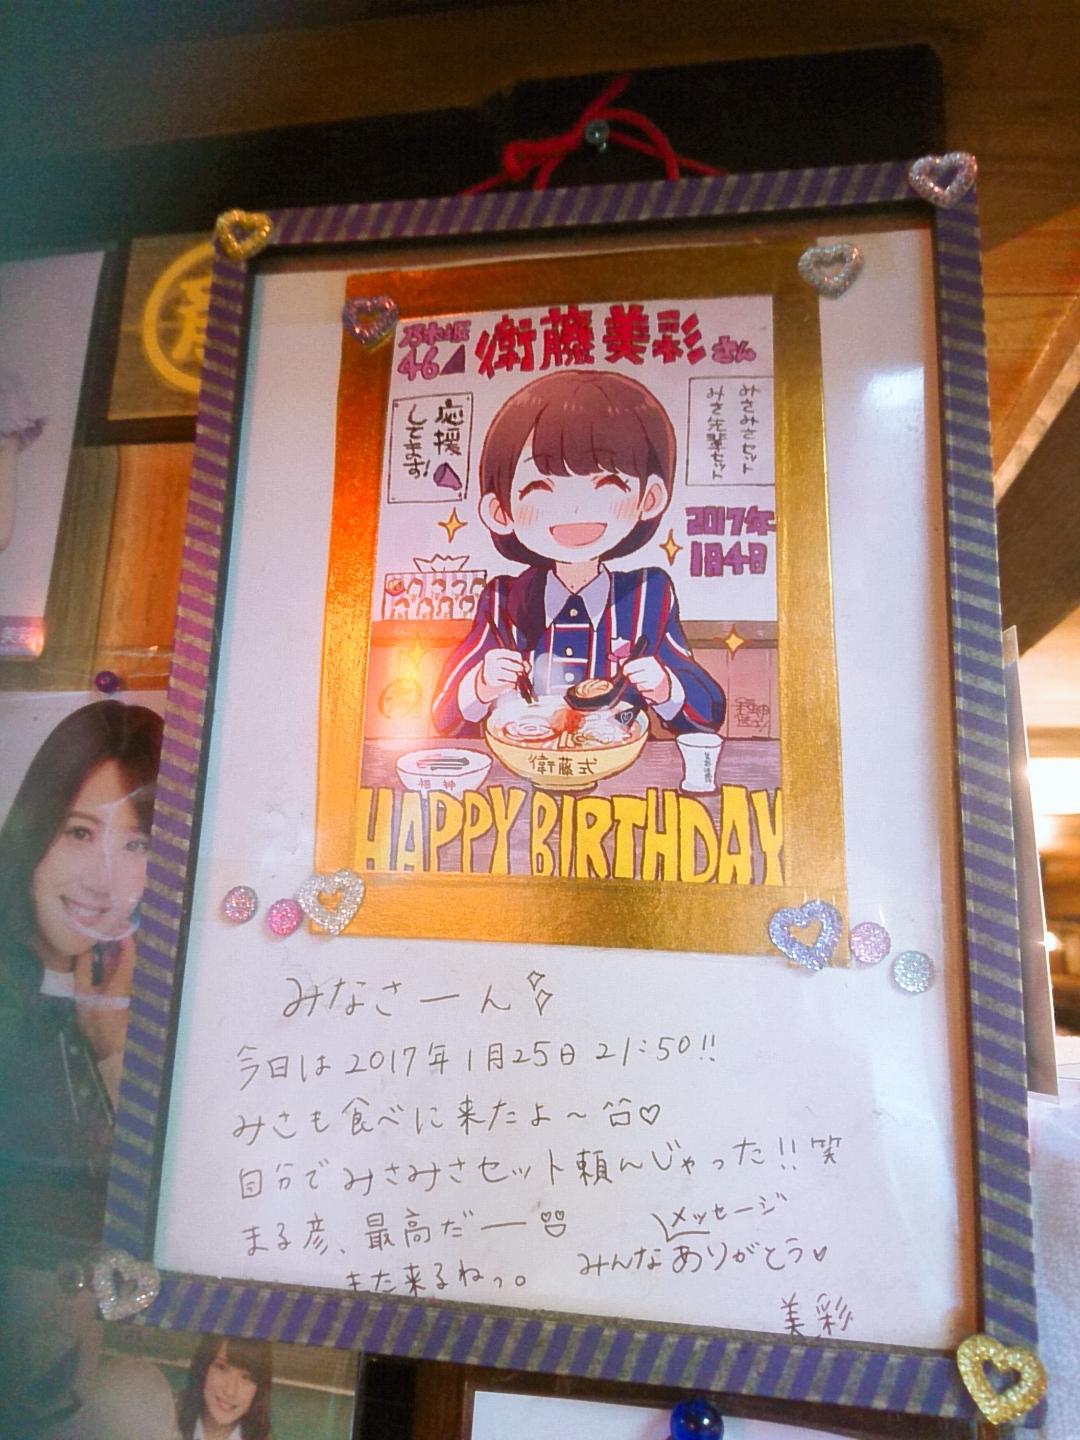 乃木坂
46
衛藤美彩さん
応援
してます!
みさみさセット
みさ先輩セット
2017年
1月4日
衛藤式
HAPPY BIRTHDAY
みなさーん
今日は2017年1月25日 21:50!!
みさも食べに来たよ〜♡
自分でみさみさセット頼んじゃった!!笑
まる彦、最高だー
メッセージ
みんなありがとう♡
また来るねっ。
美彩